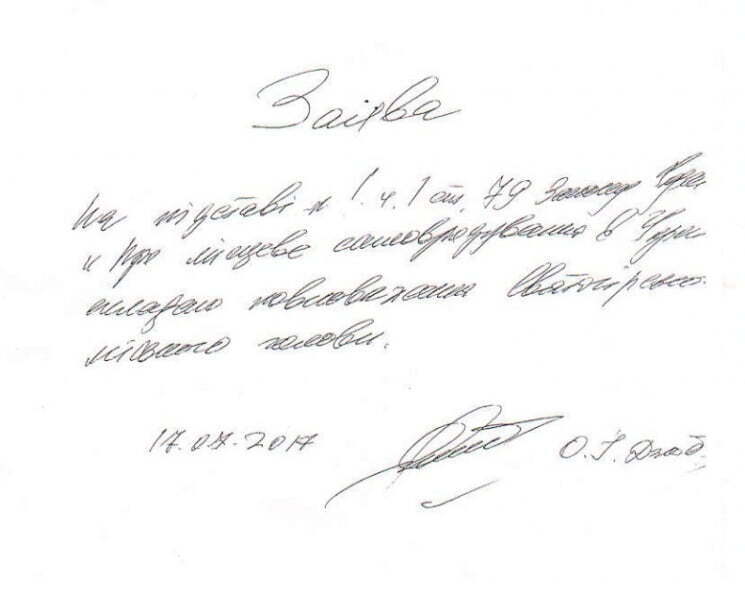 Заява
На підставі п 1. ч. 1 ст. 79 Закону Укра
"Про місцеве самоврядування в Укра
складаю повноваження Святогірськ.
міського голови.
17.07.2017 О. І. Дзюб